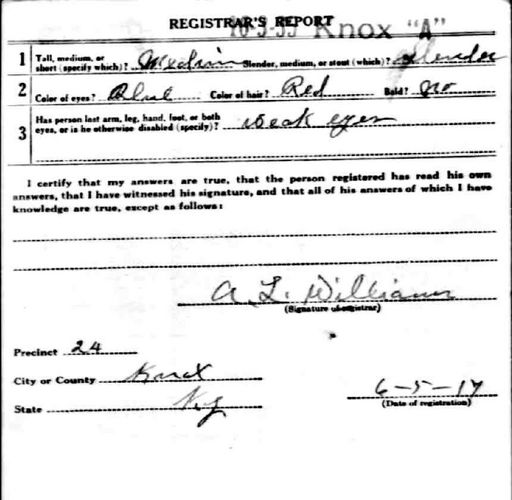 REGISTRAR'S REPORT
16-3-35 Knox "A"
1 Tall, medium, or short (specify which)? Medium Slender, medium, or stout (which)? Slender
2 Color of eyes? Blue Color of hair? Red Bald? No
3 Has person lost arm, leg, hand, foot, or both
eyes, or is he otherwise disabled (specify)? Weak eyes
I certify that my answers are true, that the person registered has read his own
answers, that I have witnessed his signature, and that all of his answers of which I have
knowledge are true, except as follows:
A. L. Williams
(Signature of registrar)
Precinct 24
City or County Knox
State Ky
6-5-17
(Date of registration)